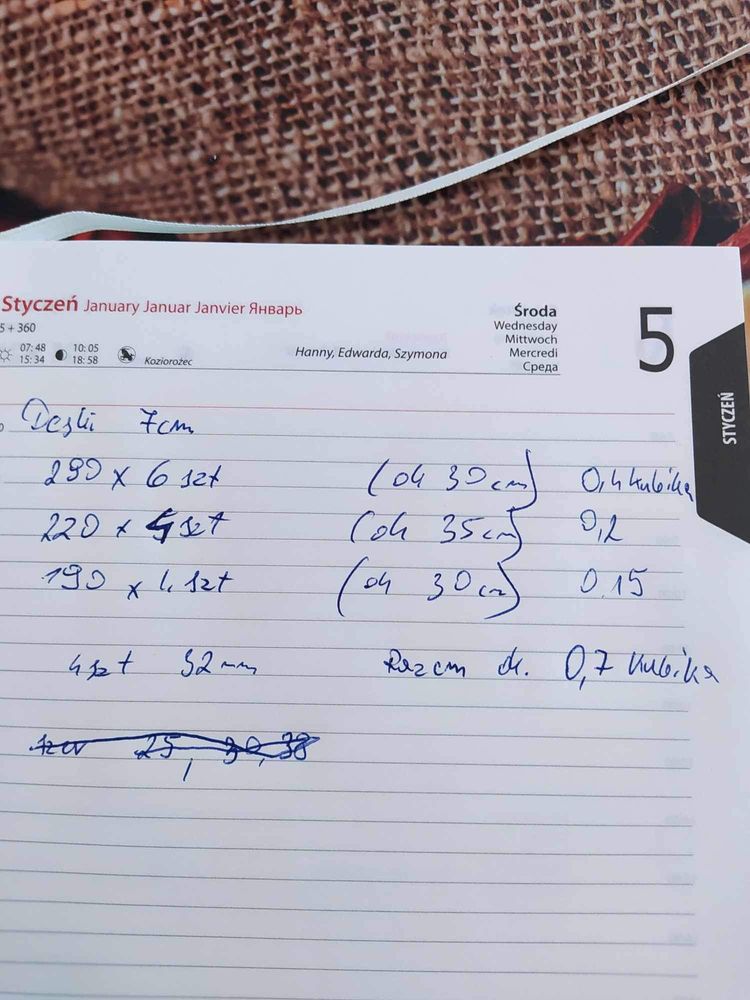 Styczeń January Januar Janvier Январь
5 + 360
07:48 10:05
15:34 18:58
Koziorożec
Hanny, Edwarda, Szymona
Środa
Wednesday
Mittwoch
Mercredi
Среда
5
STYCZEŃ
Deski 7cm
290 x 6 szt (ok 30cm) 0,4 kubika
220 x 4 szt (ok 35cm) 0,2
190 x 4 szt (ok 30cm) 0,15
4 szt 32mm Razem ok. 0,7 kubika
25, 30, 38